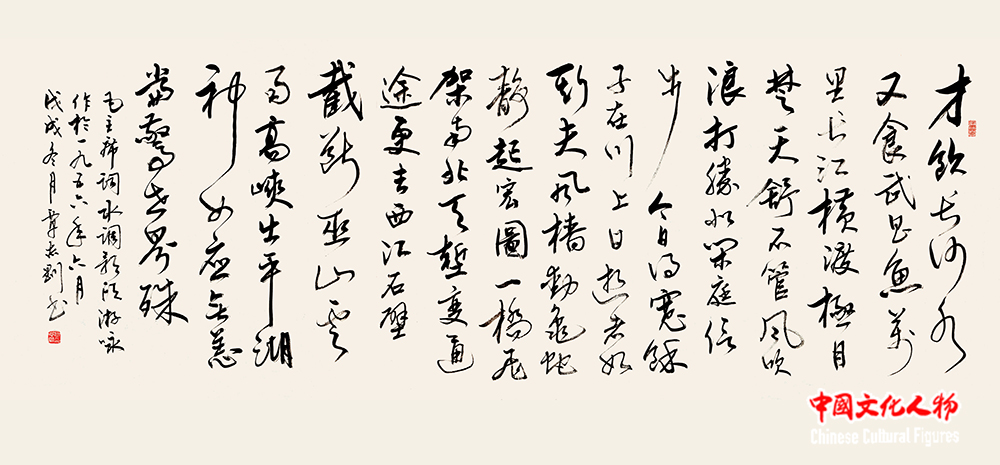 才飲長沙水
又食武昌魚萬
里長江橫渡極目
楚天舒不管風吹
浪打勝似閑庭信
步今日得寬餘
子在川上曰逝者如
斯夫風檣動龜蛇
靜起宏圖一橋飛
架南北天塹變通
途更立西江石壁
截斷巫山雲
雨高峽出平湖
神女應無恙
當驚世界殊
毛主席詞水調歌頭游泳
作於一九五六年六月
戊戌冬月書
中國文化人物
Chinese Cultural Figures